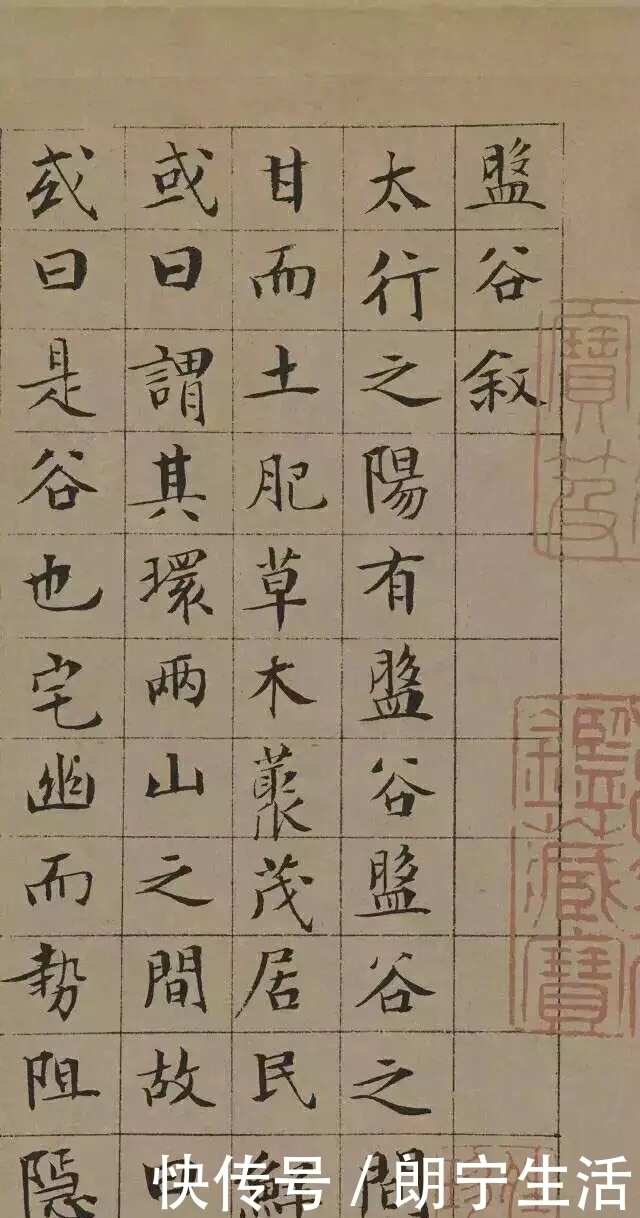 盤谷叙
太行之陽有盤谷盤谷之間
甘而土肥草木藂茂居民鮮
或曰謂其環兩山之間故曰
或曰是谷也宅幽而勢阻隱
寶笈
鑑藏寶
快传号 / 朗宁生活